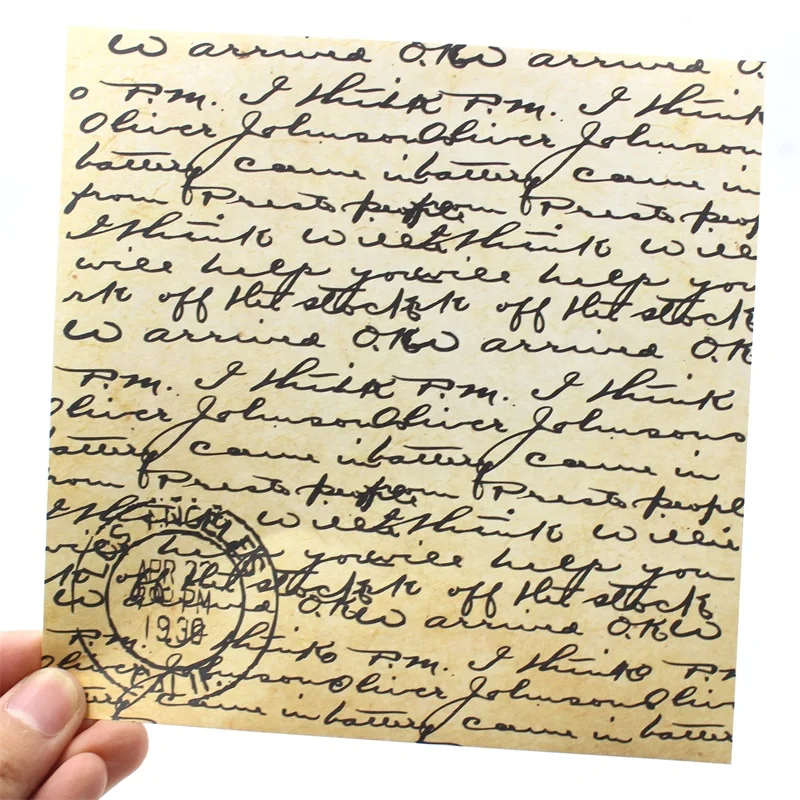 W arrived O.K W arrived O.
o P.M. I think P.M. I think
Oliver Johnson Oliver Johnson
battery came in battery came in
from Presto people from Presto peop
I think will I think will
will help you will help you
rk off the stock rk off the stock
W arrived O.K W arrived O.K
P.M. I think P.M. I think
Oliver Johnson Oliver Johnsons
battery came in battery came in
rom Presto people from Presto people
I think will I think will
will help you will help you
rk off the stock rk off the stock
W arrived O.K W arrived O.K W
P.M. I think P.M. I think P.M.
Oliver Johnson Oliver Johnson Oliv
ttery came in battery came in batter
LOS ANGELES
APR 22
PM
1930
CALIF.